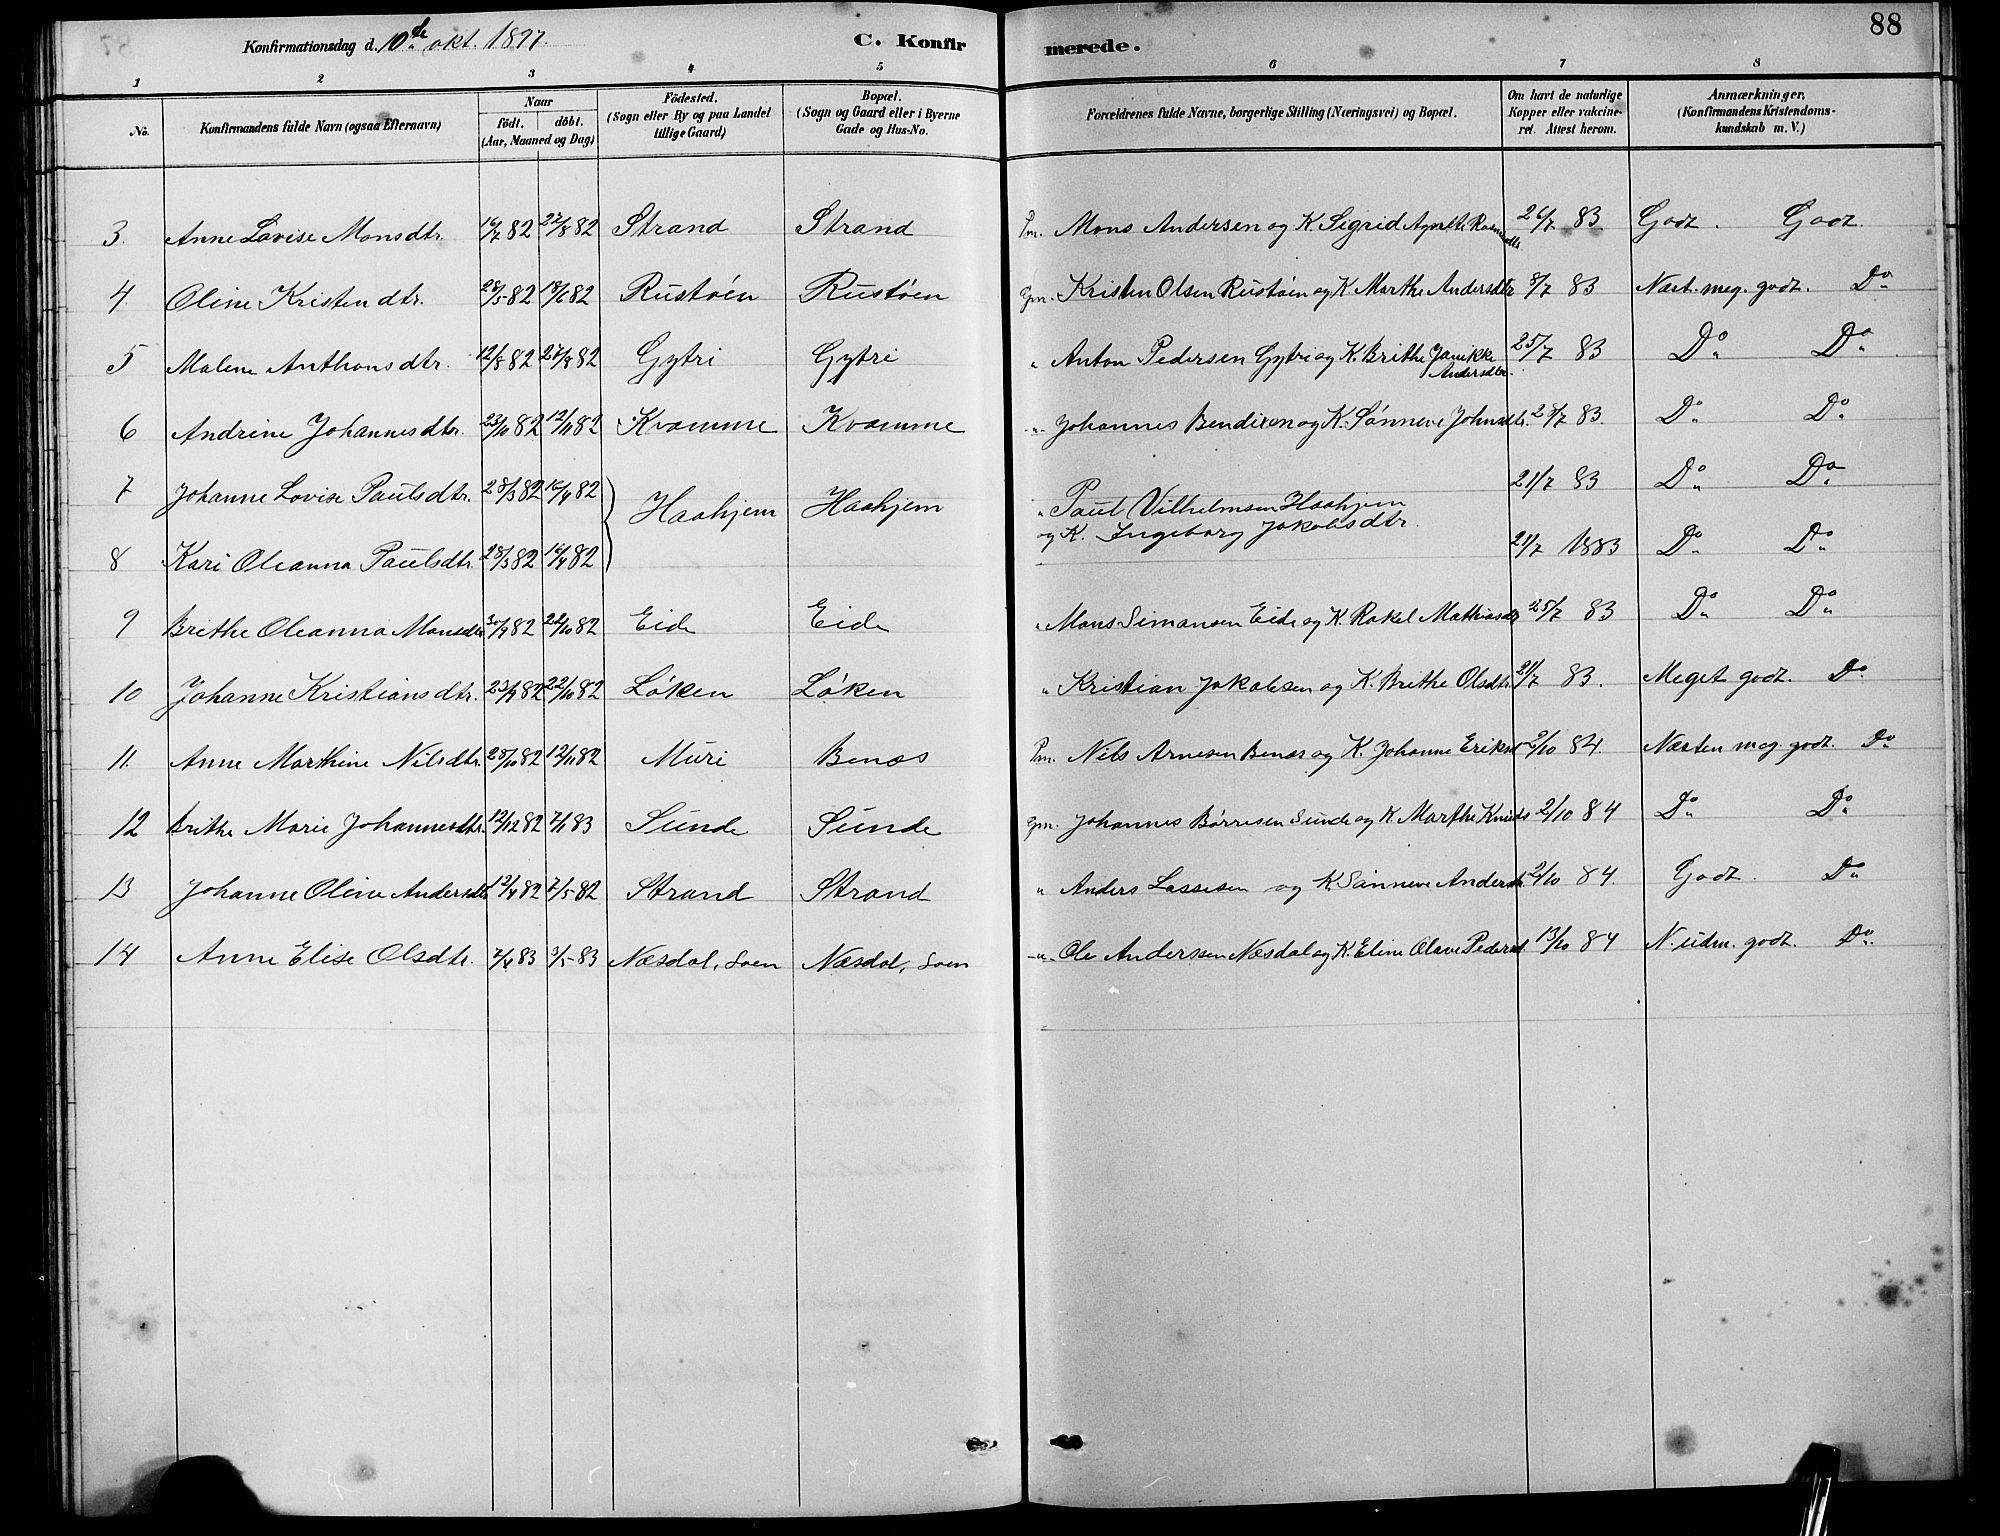 88
Konfirmationsdag d. 10de okt. 1897. C. Konfirmerede.
1 2 3 4 5 6 7 8
No. Konfirmandens fulde Navn (ogsaa Efternavn) Naar født. døbt. (Aar, Maaned og Dag) Födested. (Sogn eller By og paa Landet tillige Gaard) Bopæl. (Sogn og Gaard eller i Byerne Gade og Hus-No. Forældrenes fulde Navne, borgerlige Stilling (Næringsvei) og Bopæl. Om havt de naturlige Kopper eller vakcineret. Attest herom. Anmærkninger. (Konfirmandens Kristendomskundskab m. V.)
3. Anne Lovise Monsdtr. 16/7 82 27/8 82 Strand Strand Pm. Mons Andersen og K. Sigrid Agnethe 26/7 83. Godt. Godt.
4. Oline Kristendtr. 28/5 82 18/6 82 Rustøen Rustøen Gpm. Kristen Olsen Rustøen og K. Marthe Andersdtr 8/7 83 Næst. meg. godt. Do
5 Malene Anthonsdtr. 12/8 82 27/8 82 Gytri Gytri " Anton Pedersen Gytri og K. Brithe Janikke Andersdtr. 25/7 83 Do Do
6 Andrine Johannesdtr. 23/10 82 12/11 82 Kvamme Kvamme " Johannes Bendixen og K. Sønneve Johnsdtr. 28/7 83. Do Do
7 Johanne Lovise Paulsdtr. 28/3 82 16/4 82 Haahjem Haahjem " Paul Vilhelmsen Haahjem og K. Ingeborg Jakobsdtr. 21/7 83 Do Do
8 Kari Oleanna Paulsdtr. 28/3 82 16/4 82 21/7 1883 Do Do
9 Brithe Oleanna Monsdtr 30/9 82 22/10 82 Eide Eide " Mons Simonsen Eide og K. Rakel Mathiasdtr 25/7 83 Do Do
10 Johanne Kristiansdtr. 23/9 82 22/10 82 Løken Løken " Kristian Jakobsen og K. Brithe Olsdtr. 21/7 83. Meget godt. Do
11. Anne Marthine Nilsdtr. 28/10 82 12/11 82 Muri Benæs Pm. Nils Arnesen Benæs og K. Johanne Eriksd 2/10 84. Næsten meg. godt. Do
12 Brithe Marie Johannesdtr. 12/12 82 7/1 83 Sunde Sunde Gpm. Johannes Børresen Sunde og K. Marthe Knuds 2/10 84 Do Do
13 Johanne Oline Andersdtr 12/4 82 7/5 82 Strand Strand " Anders Lassesen og K. Sønneve Andersdtr 2/10 84. Godt. Do
14 Anne Elise Olsdtr. 2/4 83 3/5 83 Næsdal, Loen Næsdal, Loen " Ole Andersen Næsdal og K. Eline Olave Pedersd 13/10 84 N. udm. godt. Do